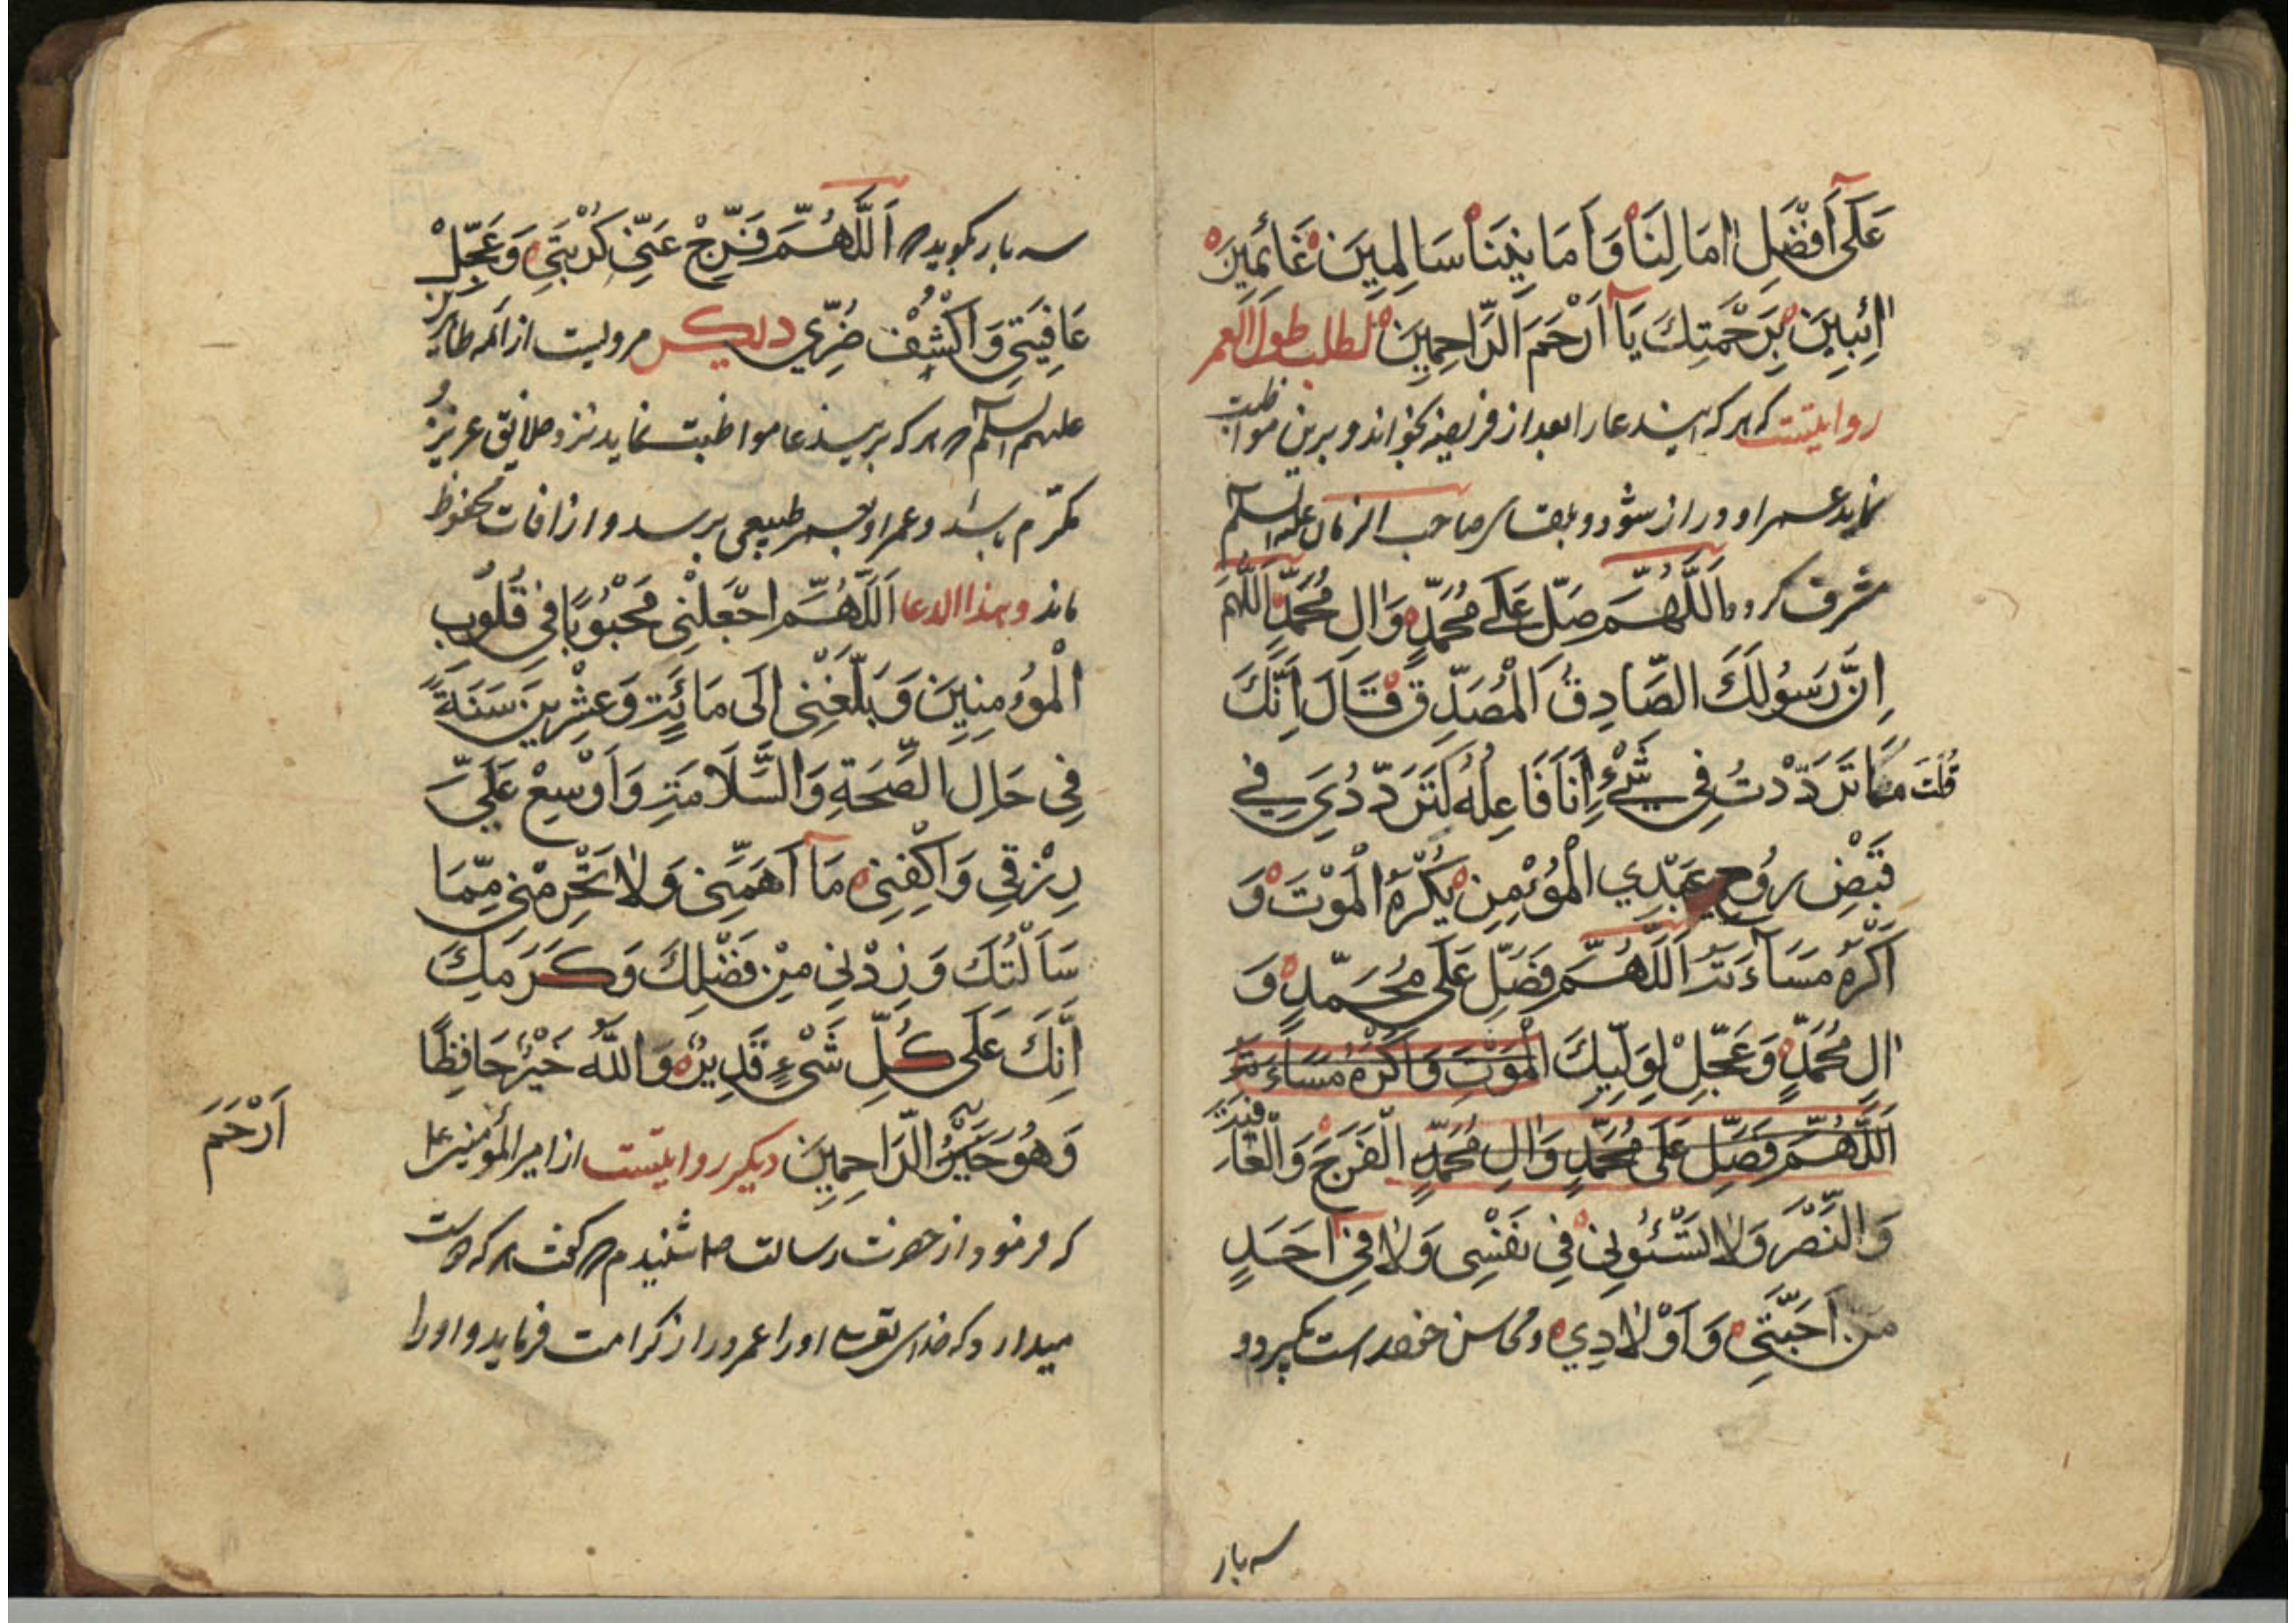 عَلَىٓ اَفْضَلِ اٰمَالِنَا وَاَمَانِيِّنَا سَالِمِينَ غَانِمِينَ
اٰئِبِينَ بِرَحْمَتِكَ يَآ اَرْحَمَ الرَّاحِمِينَ لطلب طول العمر
روایتست که هرکه اینددعا را بعد از فریضه بخواند و برین مواظبت
نماید عمر او دراز شود و بلقای صاحب الزمان علیه السلم
مشرف کردد اَللَّهُمَّ صَلِّ عَلَى مُحَمَّدٍ وَاٰلِ مُحَمَّدٍ اَللَّهُمَّ
اِنَّ رَسُولَكَ الصَّادِقُ الْمُصَدِّقَ قَالَ اِنَّكَ
قُلْتَ مَا تَرَدَّدْتُ فِي شَيْءٍ اَنَا فَاعِلُهُ كَتَرَدُّدِي فِي
قَبْضِ رُوحِ عَبْدِي الْمُؤْمِنِ يَكْرَهُ الْمَوْتَ وَ
اَكْرَهُ مَسَآءَتَهُ اَللَّهُمَّ فَصَلِّ عَلَى مُحَمَّدٍ وَ
اٰلِ مُحَمَّدٍ وَعَجِّلْ لِوَلِيِّكَ الْمَوْتَ وَاَكْرَهُ مَسَاءَتَهُ
اَللَّهُمَّ فَصَلِّ عَلَى مُحَمَّدٍ وَاٰلِ مُحَمَّدٍ الْفَرَجَ وَالْعَافِيَةَ
وَالنَّصْرَ وَلَا تَسُؤْنِي فِي نَفْسِي وَلَا فِيٓ اَحَدٍ
مِنْ اَحِبَّتِي وَاَوْلَادِي ومحاسن خود راست بکیرد و
سه بار
سه بار بکوید اَللَّهُمَّ فَرِّجْ عَنِّي كُرْبَتِي وَعَجِّلْ
عَافِيَتِي وَاكْشِفْ ضُرِّي دیکر مرویست از ائمه طاهرین
علیهم السلم هرکه برینددعا مواظبت نماید نزد خلایق عزیز و
مکرّم باشد و عمر او بعمر طبیعی برسد و از افات محفوظ
ماند وهذا الدعا اَللَّهُمَّ اجْعَلْنِي مَحْبُوبًا فِي قُلُوبِ
الْمُؤْمِنِينَ وَبَلِّغْنِي اِلَى مِائَةٍ وَعِشْرِينَ سَنَةً
فِي حَالِ الصِّحَةِ وَالسَّلَامَةِ وَاَوْسِعْ عَلَيَّ
رِزْقِي وَاكْفِنِي مَآ اَهَمَّنِي وَلَا تَحْرِمْنِي مِمَّا
سَاَلْتُكَ وَزِدْنِي مِنْ فَضْلِكَ وَكَرَمِكَ
اِنَّكَ عَلَى كُلِّ شَيْءٍ قَدِيرٌ وَاللّٰهُ خَيْرٌ حَافِظًا
وَهُوَ خَيْرُ الرَّاحِمِينَ دیکر روایتست از امیر المؤمنین ع
اَرْحَمُ
که فرمود از حضرت رسالت ص شنیدم که گفت هرکه دوست
میدارد که خدای تعالی او را عمر دراز کرامت فرماید و او را